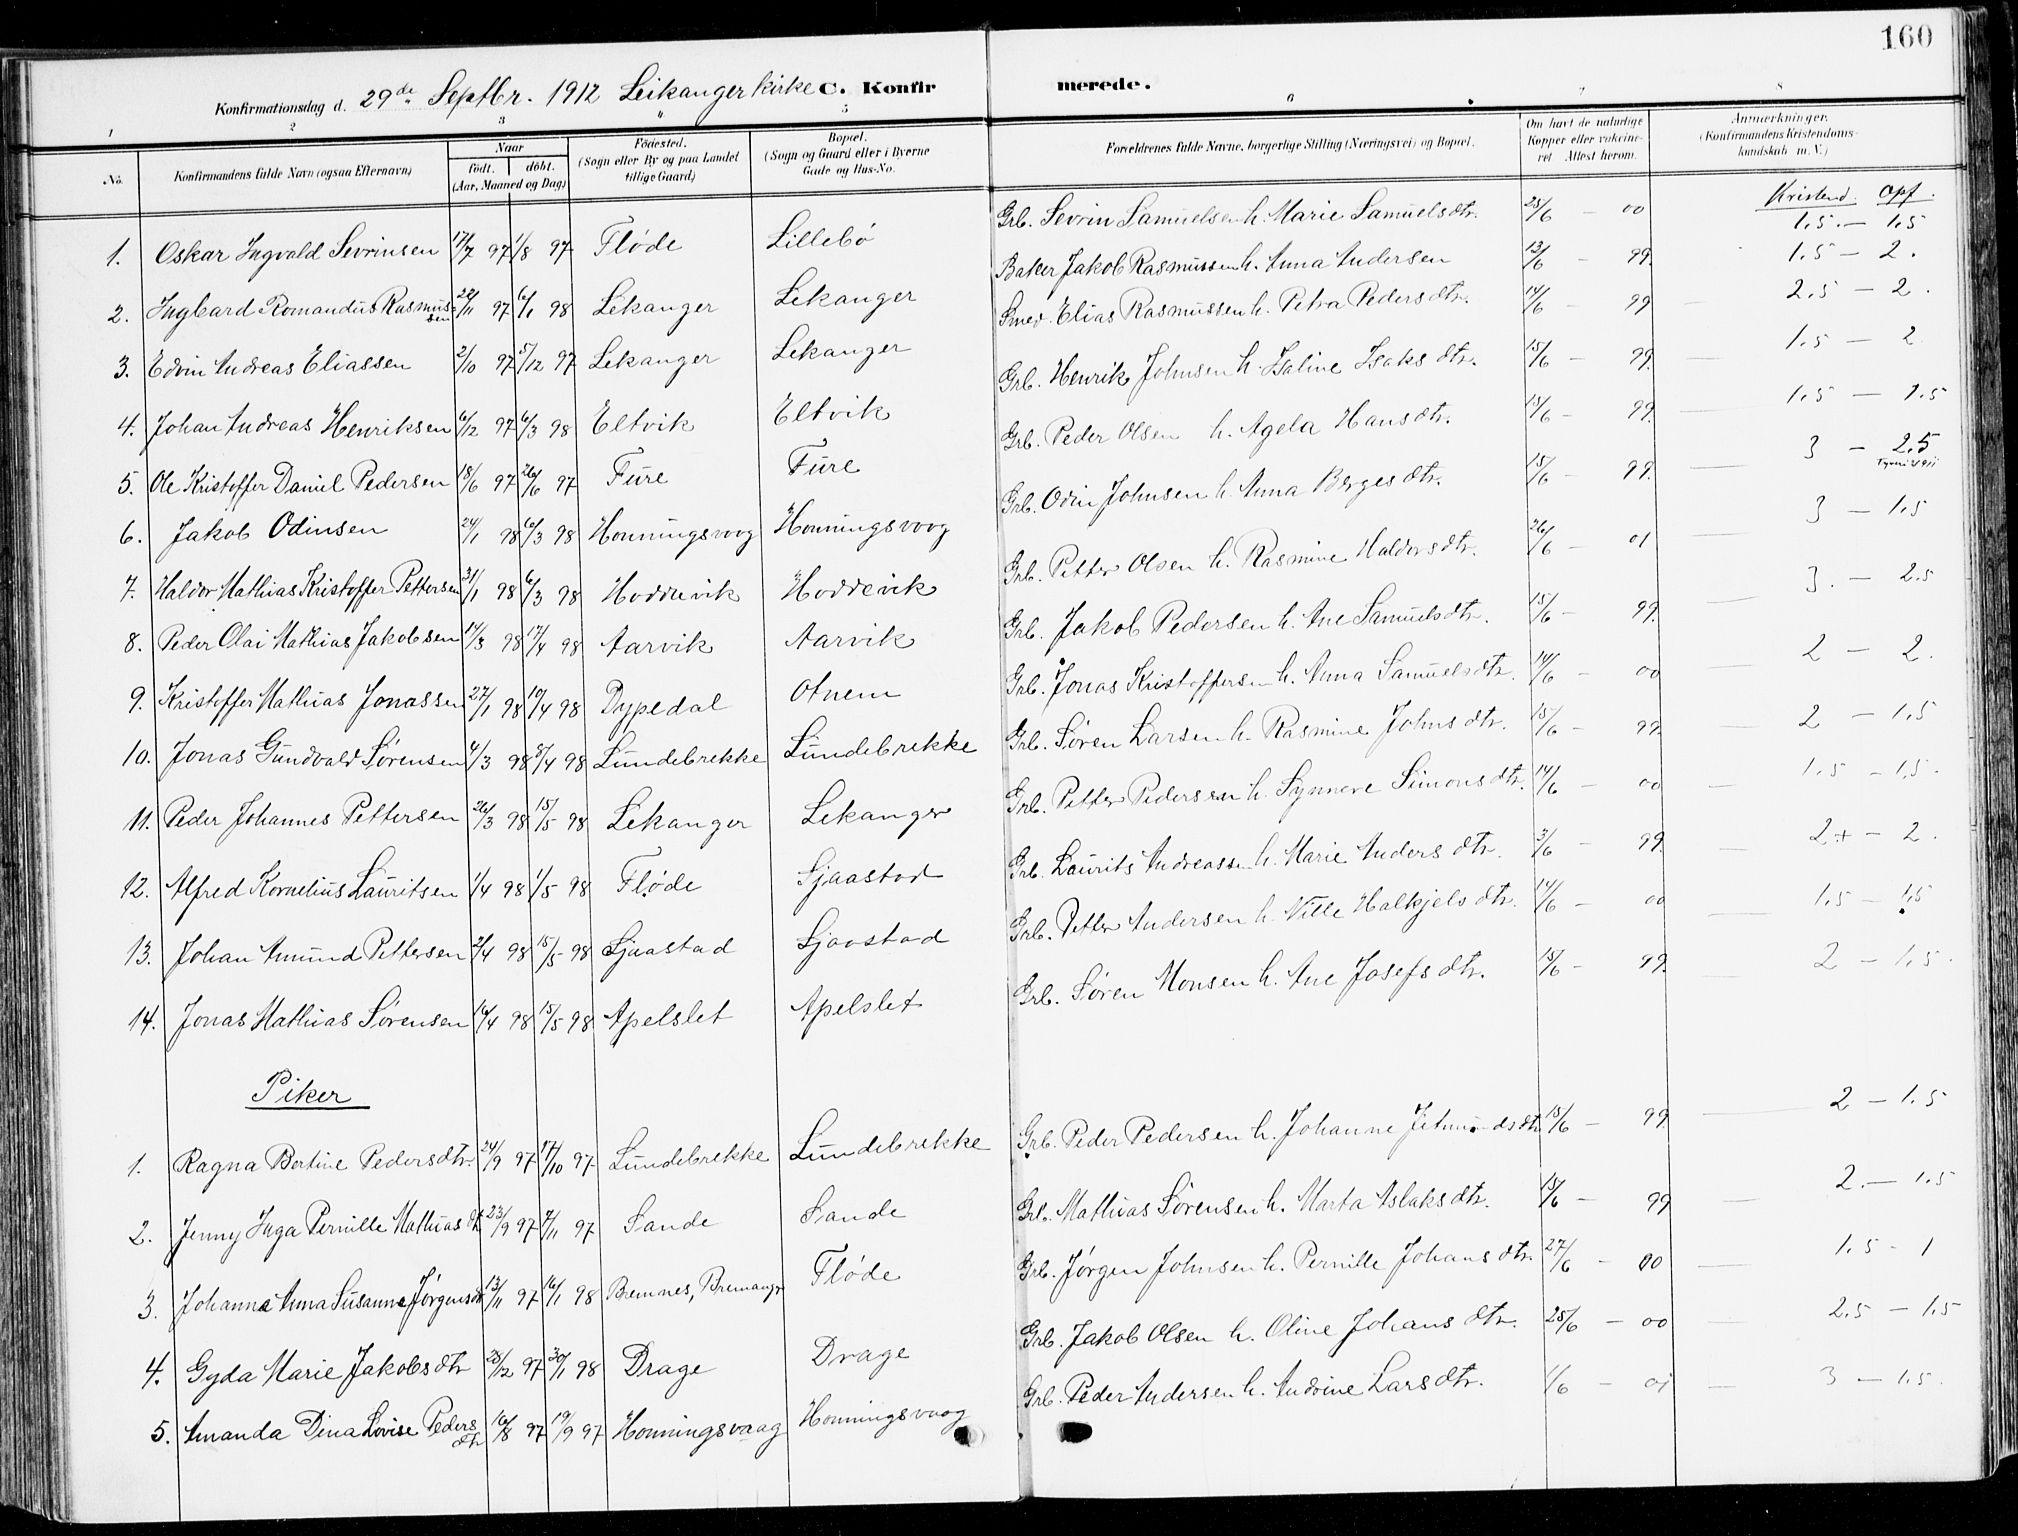 160
Konfirmationsdag d. 29de Septbr. 1912 Leikanger Kirke C. Konfirmerede.
1 2 3 4 5 6 7 8
No. Konfirmandens fulde Navn (ogsaa Efternavn) Naar født. døbt. (Aar, Maaned og Dag) Fødested. (Sogn eller By og paa Landet tillige Gaard) Bopæl. (Sogn og Gaard eller i Byerne Gade og Hus-No. Forældrenes fulde Navne, borgerlige Stilling (Næringsvei) og Bopæl. Om havt de naturlige Kopper eller vakcineret. Attest herom. Anmærkninger. (Konfirmandens Kristendomskundskab m. V.)
Kristend. Opf.
1. Oskar Ingvald Sevrinsen 17/7 97 1/8 97 Fløde Lillebø Grb. Sevrin Samuelsen h. Marie Samuelsdtr. 25/6 - 00 1.5 - 1.5
2. Ingbard Romandus Rasmussen 22/11 97 6/1 98 Lekanger Lekanger Baker Jakob Rasmussen h. Anna Andersen 13/6 - 99. 1.5 - 2.
3. Edvin Andreas Eliassen 2/10 97 5/12 97 Lekanger Lekanger Smed Elias Rasmussen h. Petra Pedersdtr. 14/6 - 99 2.5 - 2.
4. Johan Andreas Henriksen 6/12 97 6/3 98 Eltvik Eltvik Grb. Henrik Johnsen h. Isaline Isaksdtr. 15/6 - 99. 1.5 - 2
5. Ole Kristoffer Daniel Pedersen 18/6 97 26/6 97 Fure Fure Grb. Peder Olsen h. Agela Hansdtr. 15/6 - 99. 1.5 - 1.5
6. Jakob Odinsen 24/1 98 6/3 98 Honningsvaag Honningsvaag Grb. Odin Johnsen h. Anna Bergesdtr. 15/6 - 99. 3 - 2.5
7. Haldor Mathias Kristoffer Pettersen 31/1 98 6/3 98 Hoddevik Hoddevik Grb. Petter Olsen h. Rasmine Haldorsdtr. 26/6 - 01 3 - 1.5
8. Peder Olai Mathias Jakobsen 14/3 98 17/4 98 Aarvik Aarvik Grb. Jakob Pedersen h. Ane Samuelsdtr. 15/6 - 99. 3. - 2.5
9. Kristoffer Mathias Jonassen 27/1 98 10/4 98 Dypedal Otnem Grb. Jonas Kristoffersen h. Anna Samuelsdtr. 14/6 - 00 2 - 2.
10. Jonas Gundvald Sørensen 4/3 98 8/4 98 Lundebrekke Lundebrekke Grb. Søren Larsen h. Rasmine Johnsdtr. 15/6 - 99. 2 - 1.5
11. Peder Johannes Pettersen 26/3 98 15/5 98 Lekanger Lekanger Grb. Petter Pedersen h. Synneve Simonsdtr. 14/6 - 00 1.5 - 1.5.
12. Alfred Kornelius Lauritsen 1/4 98 1/5 98 Fløde Sjaastad Grb. Laurits Andreassen h. Marie Andersdtr. 3/6 - 99. 2+ - 2.
13. Johan Amund Pettersen 2/4 98 15/5 98 Sjaastad Sjaastad Grb. Petter Andersen h. Nille Halkjelsdtr. 14/6 - 00 1.5 - 1.5
14. Jonas Mathias Sørensen 16/4 98 15/5 98 Apelset Apelset Grb. Søren Monsen h. Ane Josefsdtr. 15/6 - 99. 2 - 1.5.
Piker
1. Ragna Bertine Pedersdtr. 24/9 97 17/10 97 Lundebrekke Lundebrekke Grb. Peder Pedersen h. Johanne Jetmundsdtr 15/6 - 99 2 - 1.5
2. Jenny Inga Pernille Mathiasdt 23/9 97 7/11 97 Sande Sande Grb. Mathias Sørensen h. Marta Aslaksdtr. 15/6 - 99 2. - 1.5
3. Johanne Anna Susanne Jørgensdtr 13/11 97 16/1 98 Bremnes, Bremanger Fløde Grb. Jørgen Johnsen h. Pernille Johansdtr. 27/6 - 00 1.5 - 1
4. Gyda Marie Jakobsdtr 28/12 97 30/1 98 Drage Drage Grb. Jakob Olsen h. Oline Johansdtr. 25/6 - 00 2.5 - 1.5
5. Amanda Dina Lovise Pedersdtr 16/8 97 19/9 97 Honningsvaag Honningsvaag Grb. Peder Andersen h. Andrine Larsdtr. 1/6 - 01 3 - 1.5.